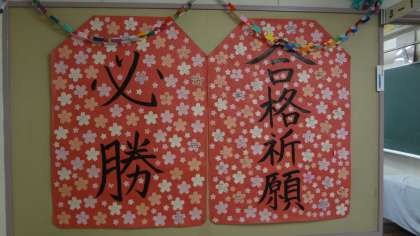 必勝
合格祈願